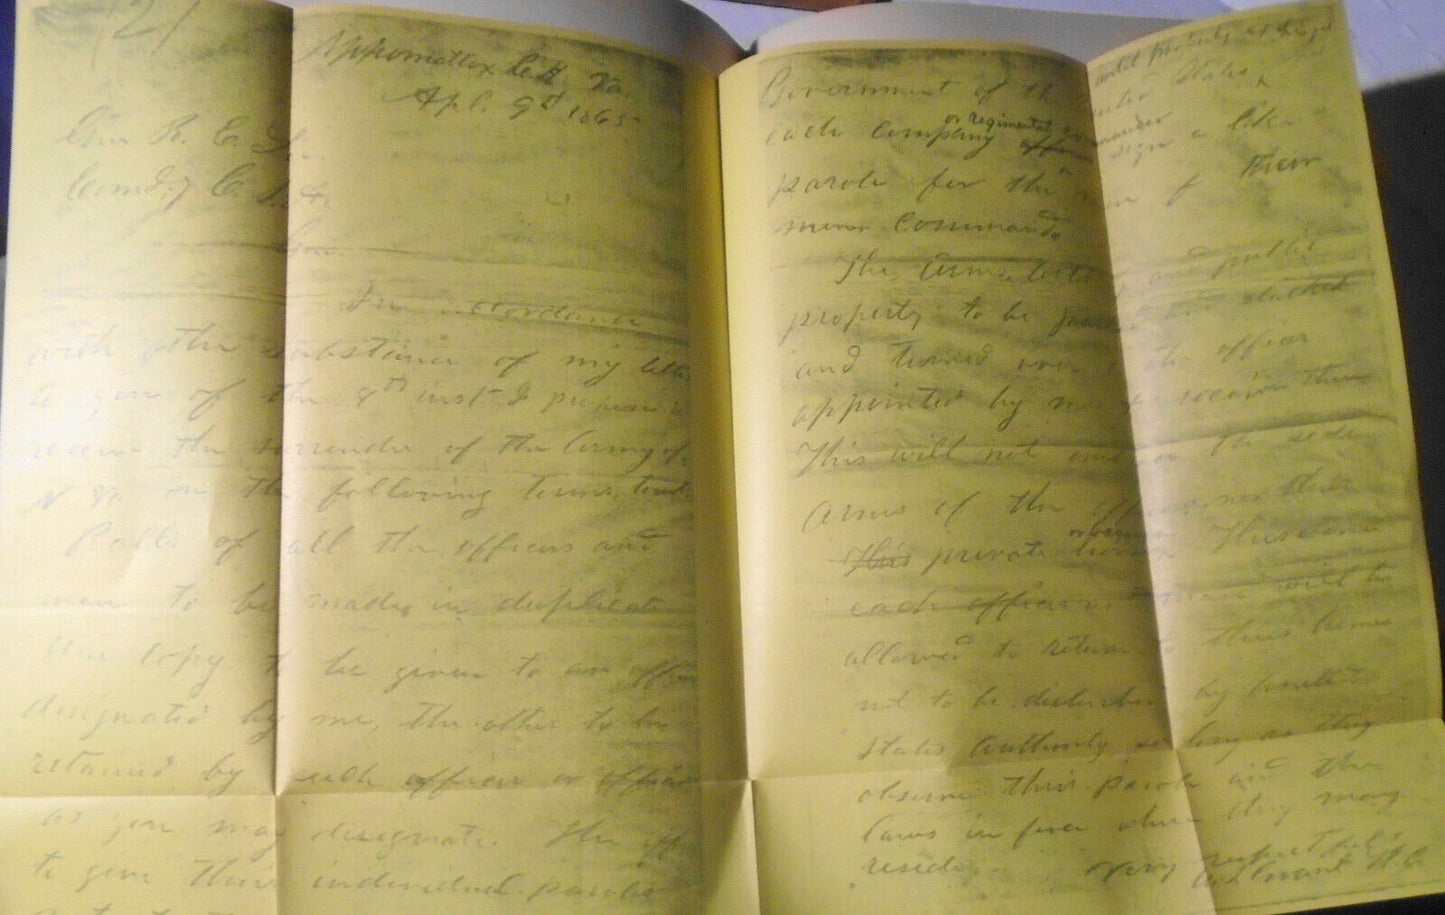 Appomattox C.H, Va.
Apl. 9th 1865
Gen R. E. Lee,
Comd.g C. S. A.
Gen.
In accordance
with the substance of my letter
to you of the 8th inst. I propose to
receive the surrender of the Army of
N Va on the following terms, towit
Rolls of all the officers and
men to be made in duplicate
One copy to be given to an officer
designated by me, the other to be
retained by such officer or officers
as you may designate. The off
to give their individual paroles
until properly
Government of the United States
or regimental commander
each company sign a like
parole for the men of their
commands
The Arms, and public
property to be parked and stacked
and turned over to the officer
appointed by me to receive them
This will not embrace the side
Arms of the officers, nor their
or baggage
This private This done
each officer and man will be
allowed to return to their homes
not to be disturbed by United
States Authority so long as they
observe their parole and the
laws in force where they may
reside.
Very respectfully
U.S. Grant